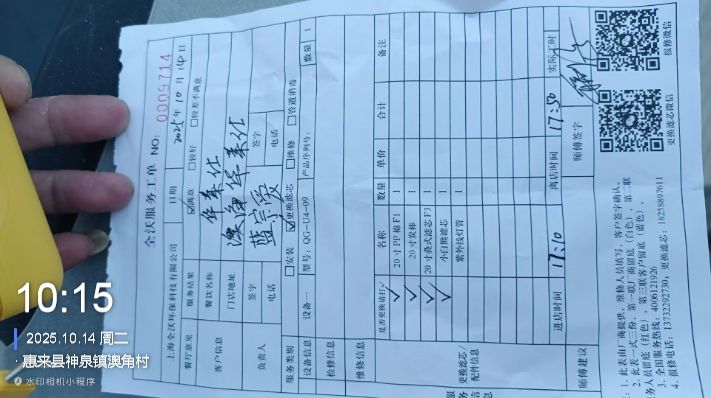 全沃服务工单 NO: 0009714
上海全沃环保科技有限公司 日期 2025年10月14日
餐厅意见 服务结果 ☑满意 □较好 □较差不满意
客户信息 餐饮名称
门店地址
负责人 签字 签字
电话 电话
服务类别 □安装 ☑更换滤芯 □维修 □管道消毒
设备信息 设备一 型号: QG-U4-09 产品序列号: 数量 1
检修信息
维修信息
更换滤芯/配件信息 是否更换请打✓ 名称 数量 单价 合计 备注
✓ 20寸PP棉F1 1
✓ 20寸炭棒 1
✓ 20寸叠式滤芯F3 1
✓ 小白熊滤芯 1
紫外线灯管 1
进店时间 17:10 离店时间 17:50 实际工时
师傅建议 师傅签字
更换滤芯微信 报修微信
1、此表由厂商提供，维修人员填写，客户签字确认。
2、此表一式三份，第一联厂商留底（白色），第二联
务人员留底（红色），第三联客户留底（蓝色）。
3、全国服务热线: 4006121926
4、报修电话: 13732292730，更换滤芯: 18258897611
10:15
2025.10.14 周二
惠来县神泉镇澳角村
水印相机小程序